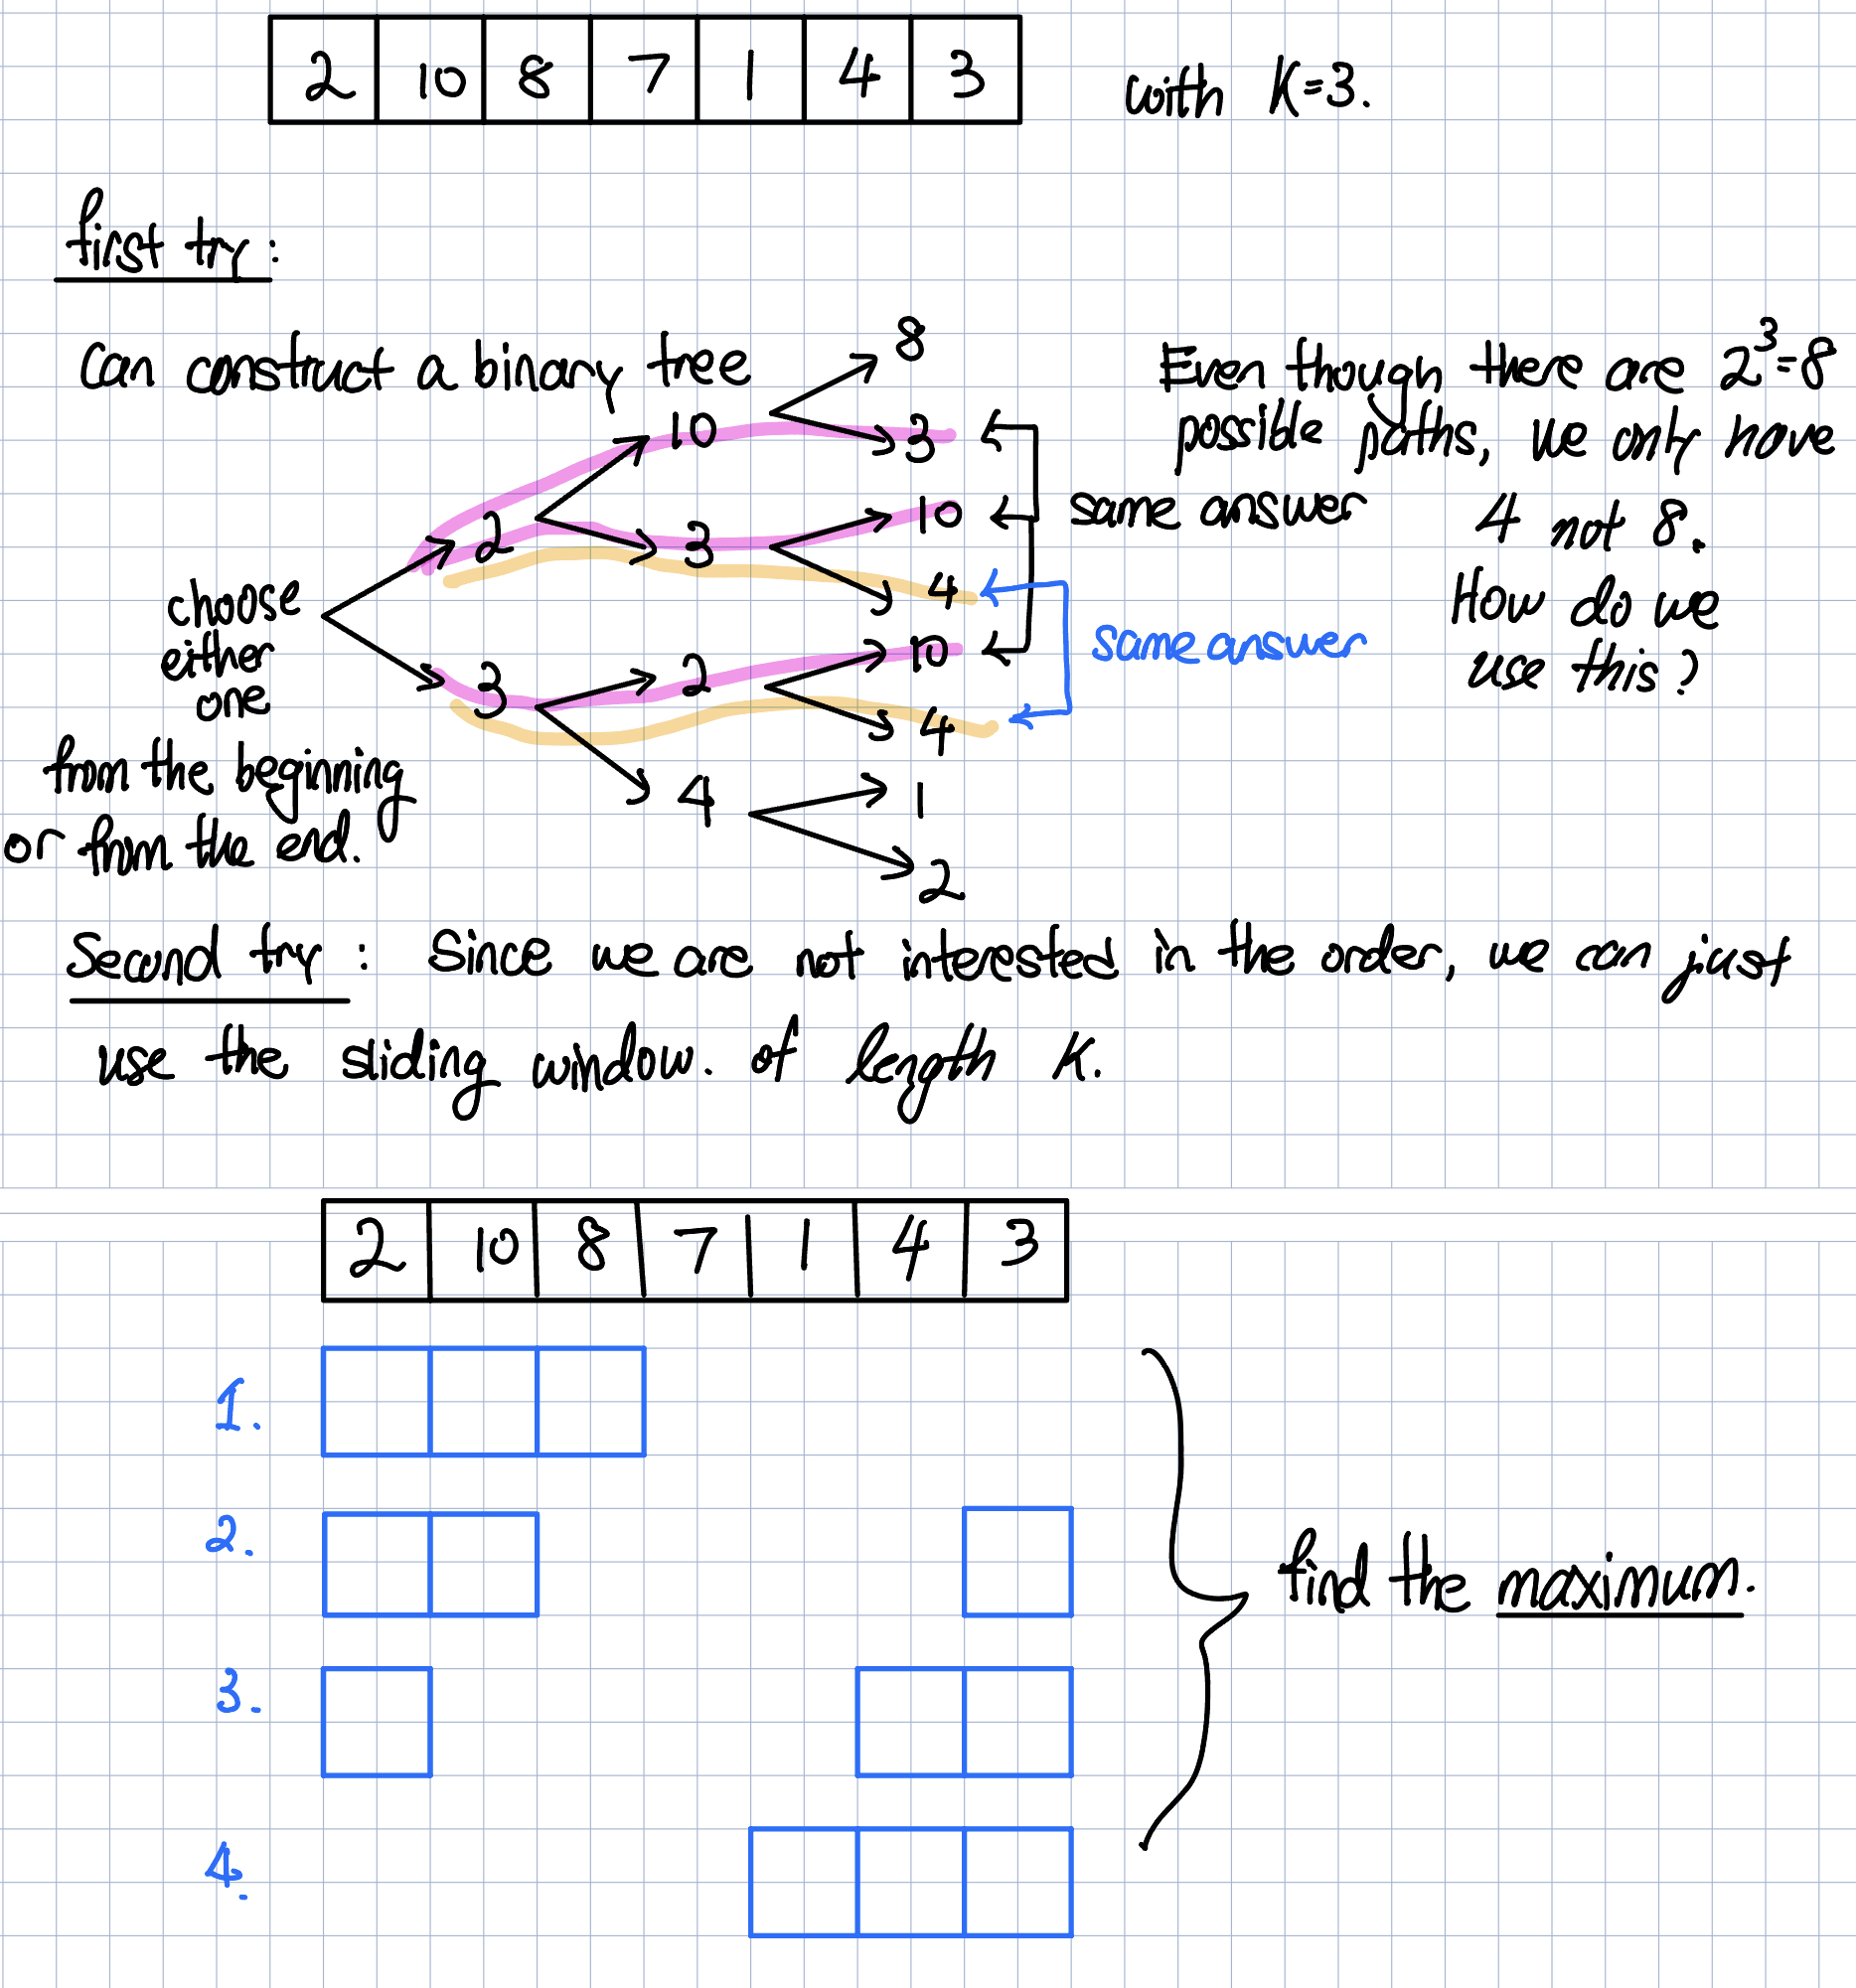 2 10 8 7 1 4 3 with K=3.
first try:
Can construct a binary tree
8
10
3
2
10
3
4
choose
either
one
from the beginning
or from the end.
3
2
10
4
4
1
2
same answer
same answer
Even though there are 2³=8
possible paths, we only have
4 not 8.
How do we
use this?
Second try: Since we are not interested in the order, we can just
use the sliding window. of length K.
2 10 8 7 1 4 3
1.
2.
3.
4.
find the maximum.